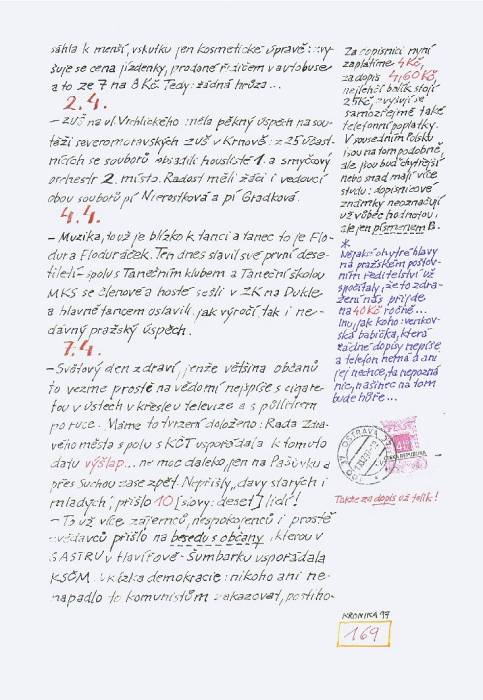 sáhla k menší, vskutku jen kosmetické úpravě: zvy-
šuje se cena jízdenky, prodané řidičem v autobuse
a to ze 7 na 8 Kč. Tedy: žádná hrůza...
2.4.
– ZUŠ na ul. Vrchlického měla pěkný úspěch na sou-
těži severomoravských ZUŠ v Krnově: z 25 účast-
nících se souborů obsadili houslisté 1. a smyčcový
orchestr 2. místo. Radost měli žáci i vedoucí
obou souborů pí Nierostková a pí Gradková.
4.4.
– Muzika, to už je blízko k tanci a tanec to je Flo-
dur a Floduráček. Ten dnes slavil své první dese-
tiletí – spolu s Tanečním klubem a Taneční školou
MKS se členové a hosté sešli v ZK na Dukle
a hlavně tancem oslavili, jak výročí tak i ne-
dávný pražský úspěch.
7.4.
– Světový den zdraví, jenže většina občanů
to vezme prostě na vědomí nejspíše s cigare-
tou v ústech v křesle u televize a s půllitrem
po ruce. Máme to tvrzení doloženo: Rada Zdra-
vého města spolu s KČT uspořádala k tomuto
datu výšlap... ne moc daleko, jen na Pašůvku a
přes Suchou zase zpět. Nepřišly „davy starých i
mladých", přišlo 10 [slovy: deset] lidí!
– To už více zájemců, nespokojenců i prostě
zvědavců přišlo na besedu s občany, kterou v
GASTRU v Havířově – Šumbarku uspořádala
KSČM. Ukázka demokracie: nikoho ani ne-
napadlo to komunistům zakazovat, postiho-
Za dopisnici nyní
zaplatíme 4 Kč,
za dopis 4,60 Kč,
nejlehčí balík stojí
25 Kč, zvyšují se
samozřejmě také
telefonní poplatky.
V sousedním Polsku
jsou na tom podobně,
ale jsou buď chytřejší
nebo snad mají více
studu: dopisnicové
známky neoznačují
už vůbec hodnotou,
ale jen písmenem B.
*
Nějaké chytré hlavy
na pražském poštov-
ním ředitelství už
spočítaly, že to zdra-
žení nás přijde
na 40 Kč ročně...
Inu, jak koho: venkov-
ská babička, která
žádné dopisy nepíše
a telefon nemá a ani
jej nechce, ta nepozná
nic, našinec na tom
bude hůře...
OSTRAVA
ČESKÁ REPUBLIKA
Takže za dopis už tolik!
KRONIKA 97
169